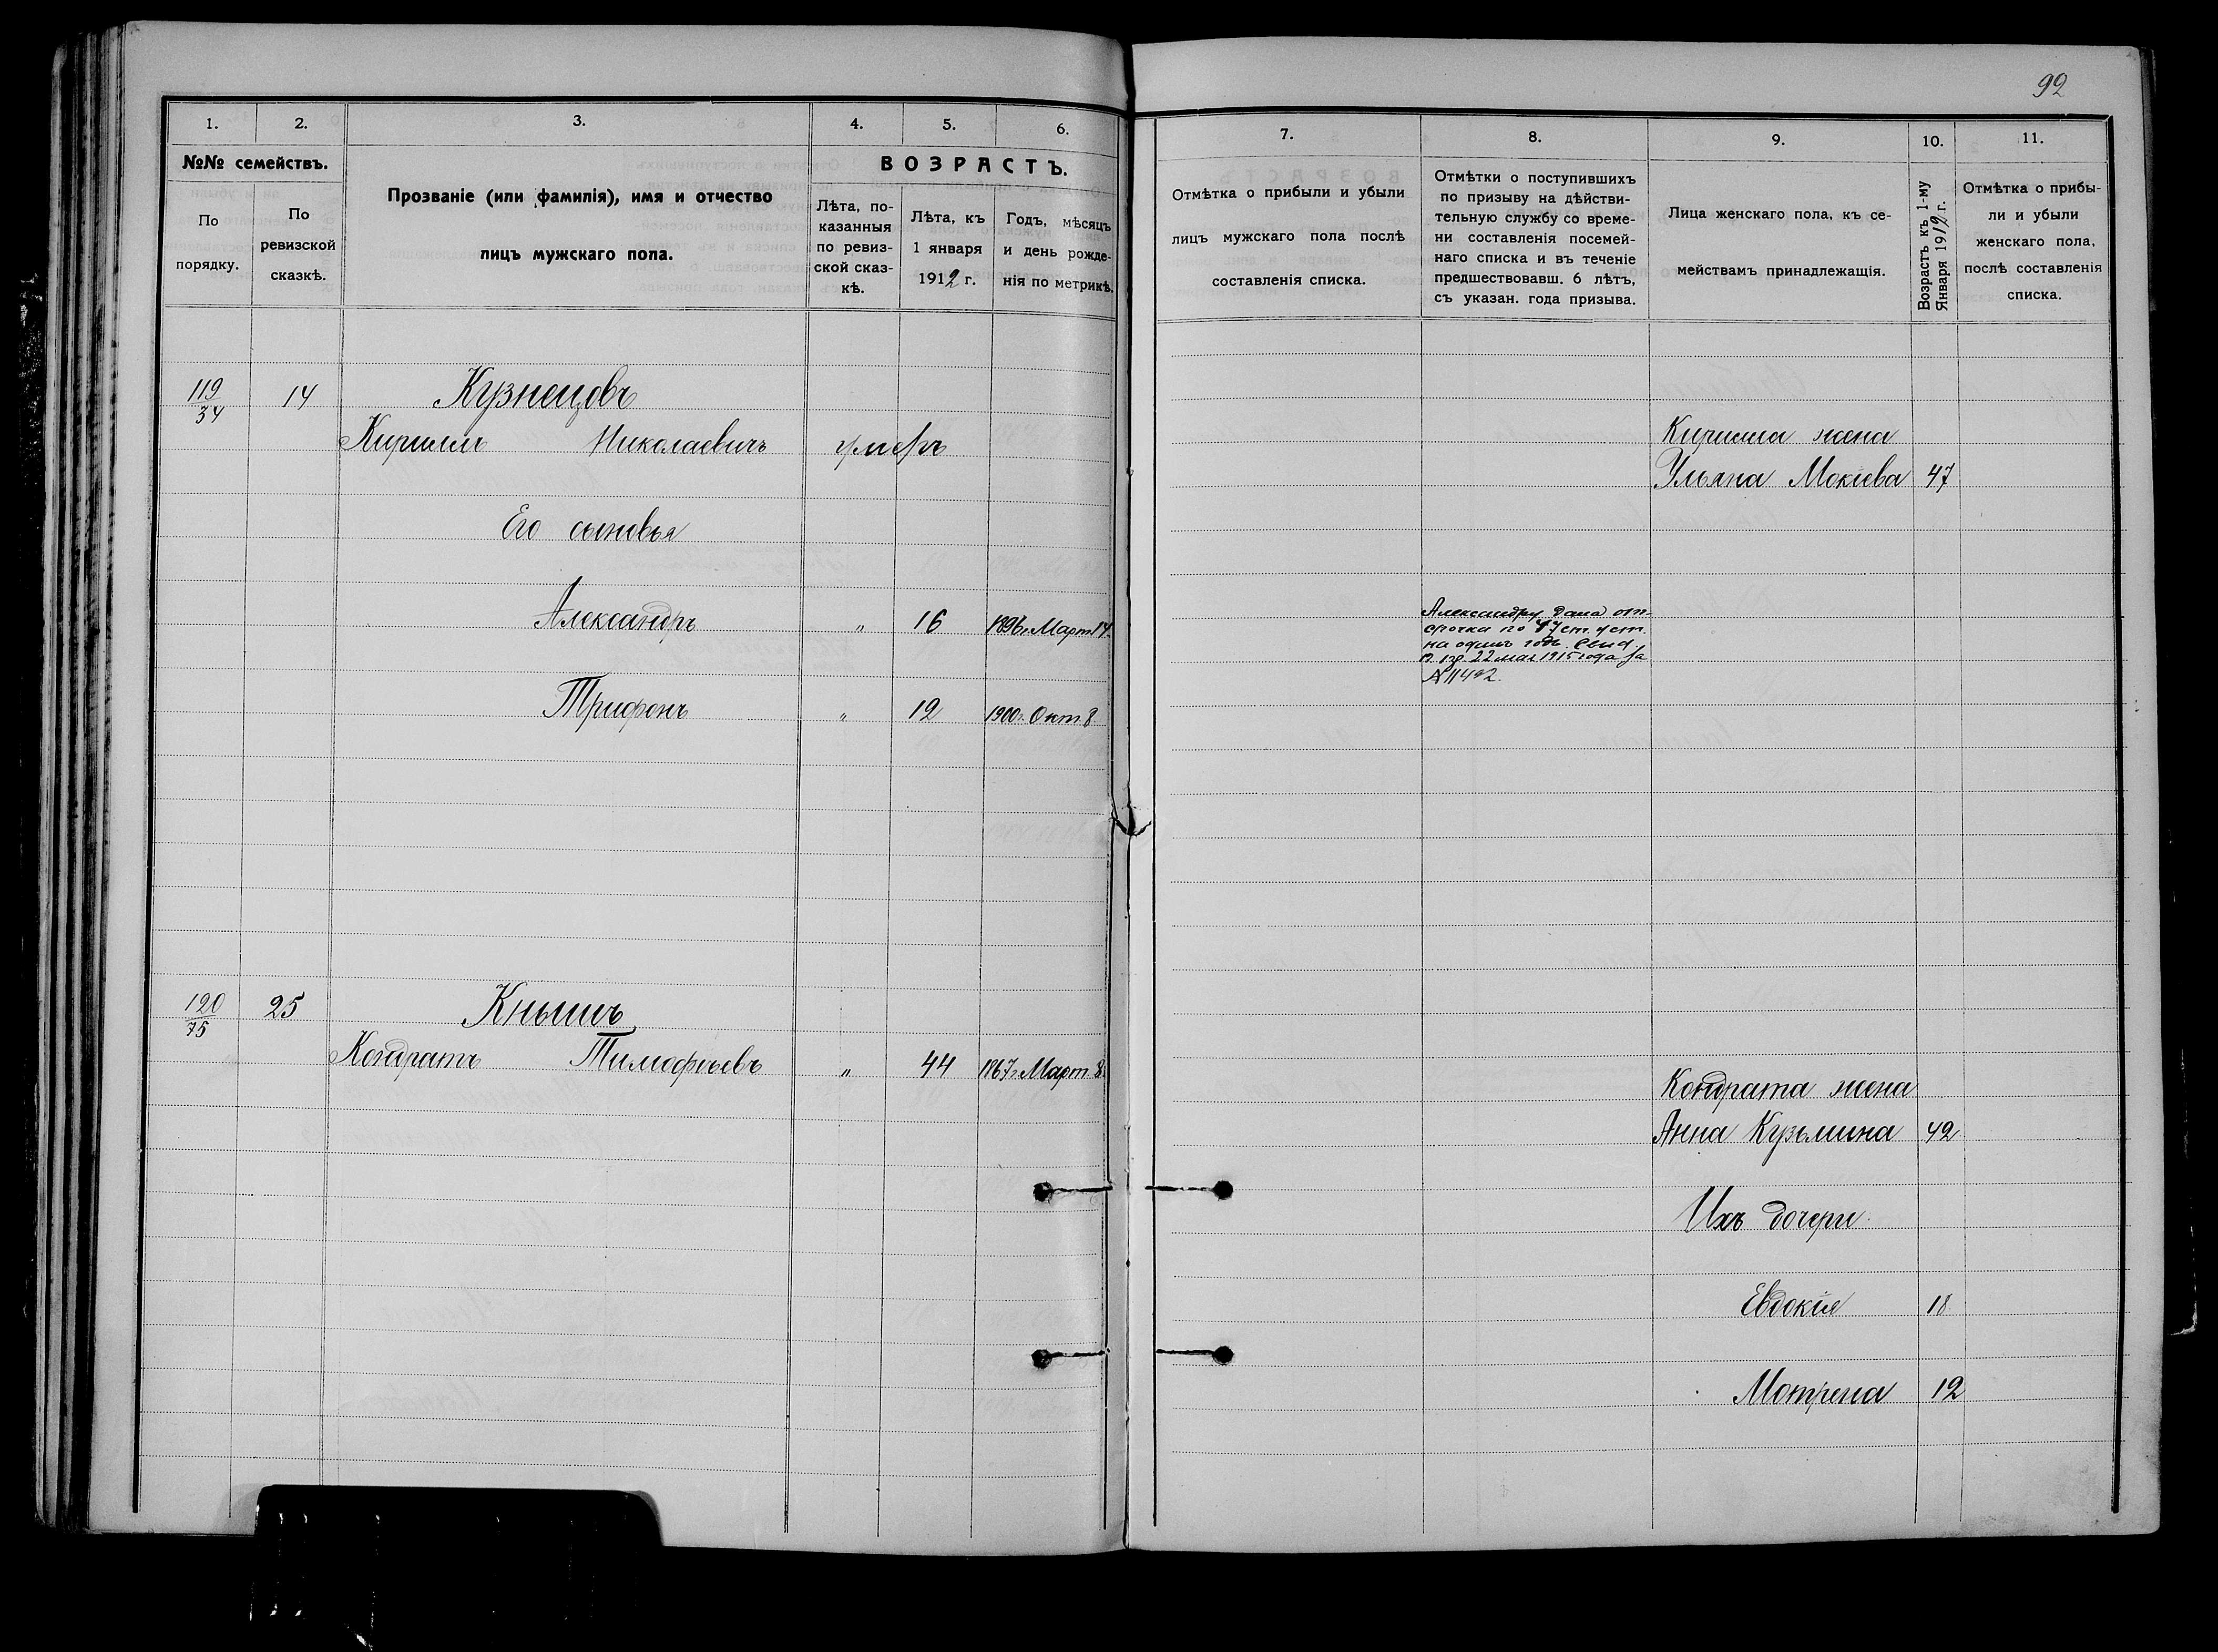 92
1. 2. 3. 4. 5. 6.
№№ семействъ.
По порядку.
По ревизской сказкѣ.
Прозваніе (или фамилія), имя и отчество
лицъ мужскаго пола.
ВОЗРАСТЪ.
Лѣта, по-
казанныя
по ревиз-
ской сказ-
кѣ.
Лѣта, къ
1 января
1912 г.
Годъ, мѣсяцъ
и день рожде-
нія по метрикѣ.
119/34 14 Кузнецовъ
Кириллъ Николаевичъ умеръ
Его сыновья
Александръ " 16 1896 г. Март 14
Трифонъ " 12 1900 г. Окт 8
120/75 25 Кнышъ
Кондратъ Тимофѣевъ " 44 1867 г. Март 8
7. 8. 9. 10. 11.
Отмѣтка о прибыли и убыли
лицъ мужскаго пола послѣ
составленія списка.
Отмѣтки о поступившихъ
по призыву на дѣйстви-
тельную службу со време-
ни составленія посемей-
наго списка и въ теченіе
предшествовавш. 6 лѣтъ,
съ указан. года призыва.
Лица женскаго пола, къ се-
мействамъ принадлежащія.
Возрастъ къ 1-му
Января 1912 г.
Отмѣтка о прибы-
ли и убыли
женскаго пола,
послѣ составленія
списка.
Кирилла жена
Ульяна Мокіева 47
Александру дана от-
срочка по ст. уст.
на одинъ годъ. Свид.
22 мая 1915 года за
№ 11492.
Кондрата жена
Анна Кузьмина 42
Ихъ дочери
Евдокія 18
Мотрена 12